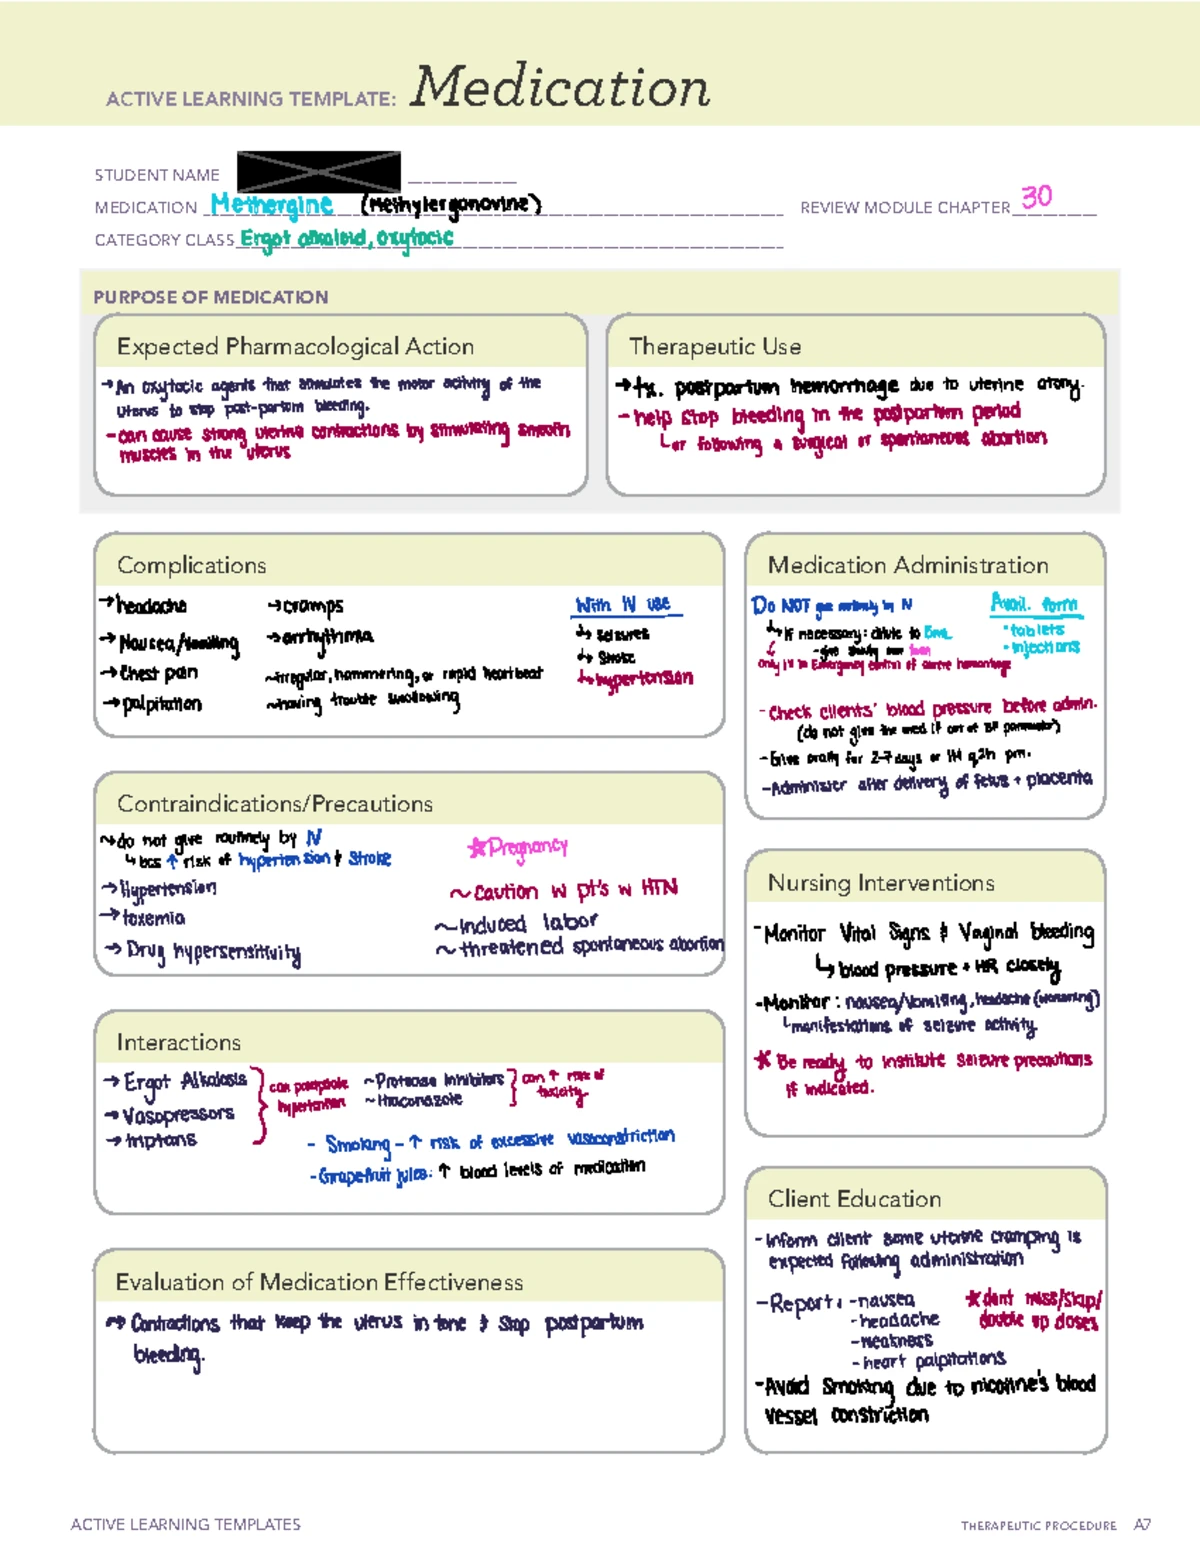 ACTIVE LEARNING TEMPLATE: Medication
STUDENT NAME
MEDICATION Methergine (Methylergonovine) REVIEW MODULE CHAPTER 30
CATEGORY CLASS Ergot alkaloid, oxytocic
PURPOSE OF MEDICATION
Expected Pharmacological Action
→An oxytocic agents that stimulates the motor activity of the
uterus to stop post-partum bleeding.
-can cause strong uterine contractions by stimulating smooth
muscles in the uterus
Therapeutic Use
→tx. postpartum hemorrhage due to uterine atony.
- help stop bleeding in the postpartum period
↳or following a surgical or spontaneous abortion
Complications
→headache
→Nausea/Vomiting
→Chest pain
→palpitation
→cramps
→arrhythmia
~irregular, hammering, or rapid heartbeat
~having trouble swallowing
With IV use
↳ seizures
↳ Stroke
↳hypertension
Medication Administration
Do NOT give routinely by IV
↳If necessary: dilute to 5mL
-give slowly over 1min
only IV in Emergency control of severe hemorrhage
Avail. form
•tablets
•injections
-Check clients' blood pressure before admin.
(do not give the med if out of BP parameter)
-Give orally for 2-7 days or IM q2h prn.
-Administer after delivery of fetus + placenta
Contraindications/Precautions
~do not give routinely by IV
↳bcs ↑ risk of hypertension & Stroke
→Hypertension
→toxemia
→ Drug hypersensitivity
☆Pregnancy
~caution w pt's w HTN
~induced labor
~threatened spontaneous abortion
Nursing Interventions
-Monitor Vital Signs & Vaginal bleeding
↳blood pressure + HR closely
-Monitor: nausea/vomiting, headache (worsening)
↳manifestations of seizure activity.
* Be ready to institute seizure precautions
if indicated.
Interactions
→ Ergot Alkaloids
→Vasopressors
→triptans
can potentiate
hypertension
~Protease Inhibitors
~Itraconazole
can ↑ risk of
toxicity
- Smoking - ↑ risk of excessive vasoconstriction
-Grapefruit juice: ↑ blood levels of medication
Client Education
-Inform client some uterine cramping is
expected following administration
-Report: -nausea
-headache
-weakness
-heart palpitations
*dont miss/skip/
double up doses
-Avoid smoking due to nicotine's blood
vessel constriction
Evaluation of Medication Effectiveness
→ Contractions that keep the uterus in tone & stop postpartum
bleeding.
ACTIVE LEARNING TEMPLATES
THERAPEUTIC PROCEDURE A7